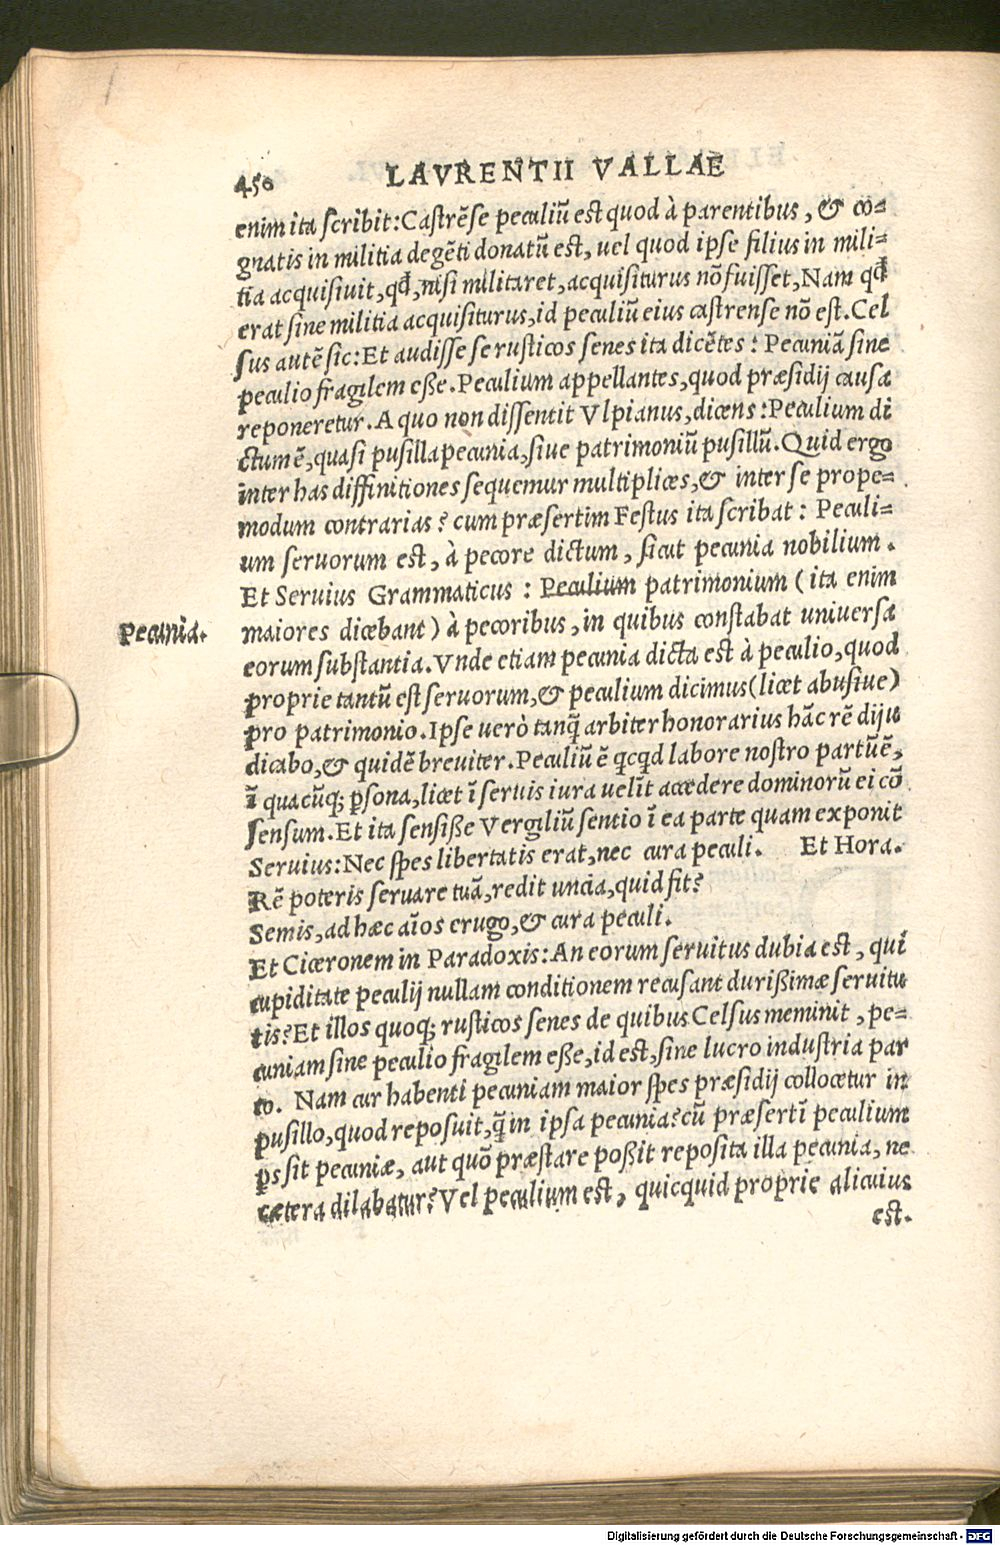 450 LAVRENTII VALLAE
enim ita scribit: Castrēse peculiū est quod à parentibus, & co=
gnatis in militia degēti donatū est, uel quod ipse filius in mili=
tia acquisiuit, qđ, nisi militaret, acquisiturus nō fuisset, Nam qđ
erat sine militia acquisiturus, id peculiū eius castrense nō est. Cel
sus autē sic: Et audisse se rusticos senes ita dicētes: Pecuniā sine
peculio fragilem eße. Peculium appellantes, quod præsidij causa
reponeretur. A quo non dissentit Vlpianus, dicens: Peculium di
ctum ē, quasi pusilla pecunia, siue patrimoniū pusillū. Quid ergo
inter has diffinitiones sequemur multiplices, & inter se prope=
modum contrarias? cum præsertim Festus ita scribat: Peculi=
um seruorum est, à pecore dictum, sicut pecunia nobilium.
Et Seruius Grammaticus: Peculium patrimonium (ita enim
Pecunia.
maiores dicebant) à pecoribus, in quibus constabat uniuersa
eorum substantia. Vnde etiam pecunia dicta est à peculio, quod
proprie tantū est seruorum, & peculium dicimus (licet abusiue)
pro patrimonio. Ipse uerò tanq̄ arbiter honorarius hāc rē diju
dicabo, & quidē breuiter. Peculiū ē qcqd labore nostro partū ē,
ī quacūq; psona, licet ī seruis iura uelīt accedere dominorū ei cō
sensum. Et ita sensiße Vergiliū sentio ī ea parte quam exponit
Seruius: Nec spes libertatis erat, nec cura peculi. Et Hora.
Rē poteris seruare tuā, redit uncia, quid fit?
Semis, ad hæc aīos erugo, & cura peculi.
Et Ciceronem in Paradoxis: An eorum seruitus dubia est, qui
cupiditate peculij nullam conditionem recusant durißimæ seruitu
tis? Et illos quoq; rusticos senes de quibus Celsus meminit, pe=
cuniam sine peculio fragilem eße, id est, sine lucro industria par
to. Nam cur habenti pecuniam maior spes præsidij collocetur in
pusillo, quod reposuit, q̄ in ipsa pecunia? cū præsertī peculium
ps sit pecuniæ, aut quō præstare poßit reposita illa pecunia, ne
cætera dilabatur? Vel peculium est, quicquid proprie alicuius
est.
Digitalisierung gefördert durch die Deutsche Forschungsgemeinschaft - DFG